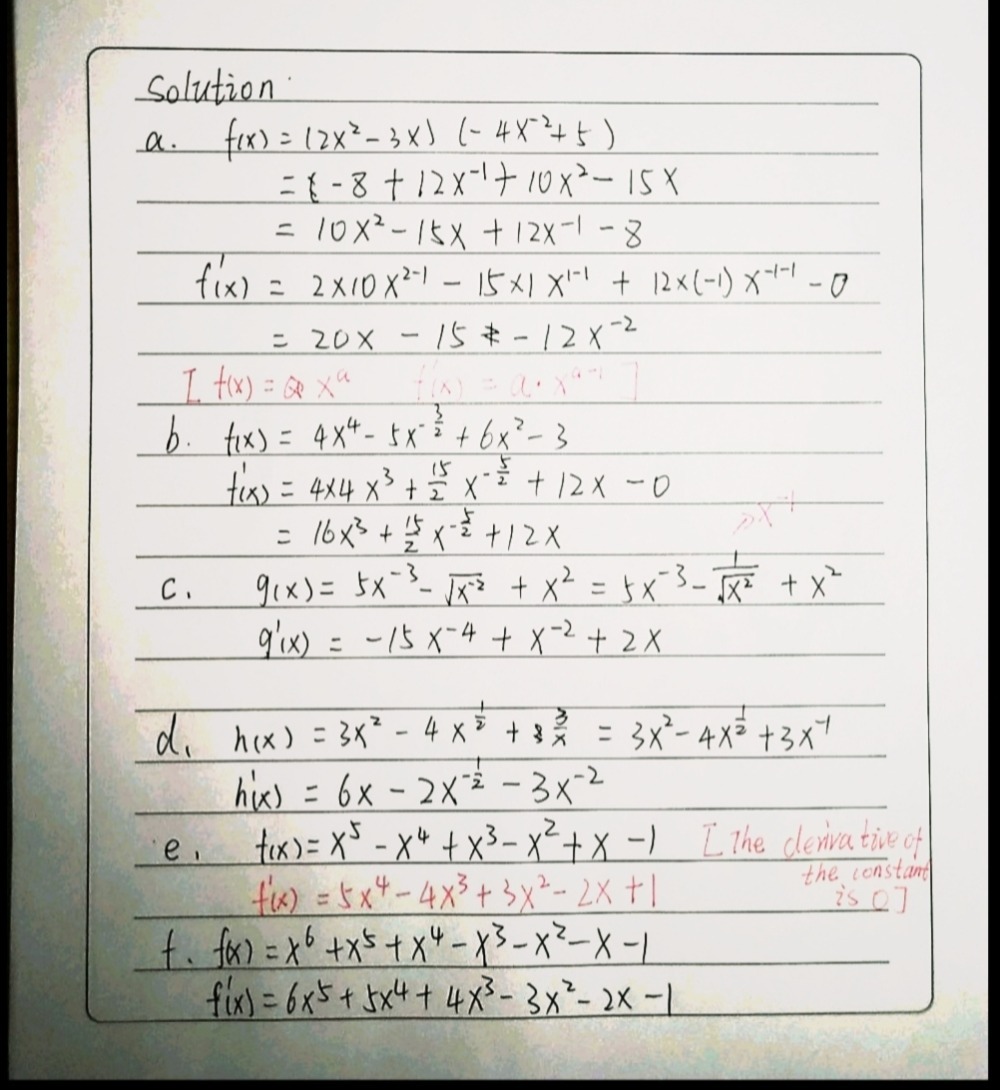 Solution
a. f(x) = (2x² - 3x) (-4x⁻² + 5)
= -8 + 12x⁻¹ + 10x² - 15x
= 10x² - 15x + 12x⁻¹ - 8
f'(x) = 2×10x²⁻¹ - 15×1x¹⁻¹ + 12×(-1)x⁻¹⁻¹ - 0
= 20x - 15 - 12x⁻²
[ f(x) = xᵃ f'(x) = a·xᵃ⁻¹ ]
b. f(x) = 4x⁴ - 5x^(-3/2) + 6x² - 3
f'(x) = 4×4x³ + 15/2 x^(-5/2) + 12x - 0
= 16x³ + 15/2 x^(-5/2) + 12x
x⁻¹
c. g(x) = 5x⁻³ - √x⁻² + x² = 5x⁻³ - 1/√x² + x²
g'(x) = -15x⁻⁴ + x⁻² + 2x
d. h(x) = 3x² - 4x^(1/2) + 3/x = 3x² - 4x^(1/2) + 3x⁻¹
h'(x) = 6x - 2x^(-1/2) - 3x⁻²
e. f(x) = x⁵ - x⁴ + x³ - x² + x - 1 [ The derivative of
the constant
f'(x) = 5x⁴ - 4x³ + 3x² - 2x + 1 is 0 ]
f. f(x) = x⁶ + x⁵ + x⁴ - x³ - x² - x - 1
f'(x) = 6x⁵ + 5x⁴ + 4x³ - 3x² - 2x - 1